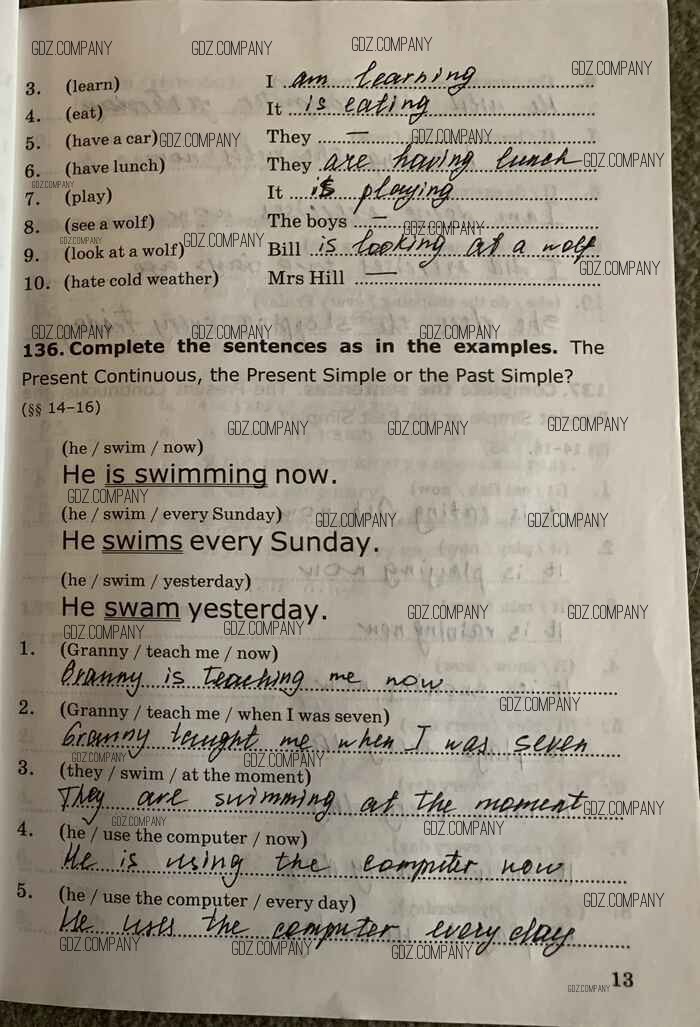 GDZ.COMPANY GDZ.COMPANY GDZ.COMPANY
GDZ.COMPANY
3. (learn) I am learning
4. (eat) It is eating
5. (have a car) GDZ.COMPANY They — GDZ.COMPANY
6. (have lunch) They are having lunch GDZ.COMPANY
GDZ.COMPANY
7. (play) It is playing
8. (see a wolf) The boys — GDZ.COMPANY
GDZ.COMPANY GDZ.COMPANY
9. (look at a wolf) Bill is looking at a wolf
GDZ.COMPANY
10. (hate cold weather) Mrs Hill —
GDZ.COMPANY GDZ.COMPANY GDZ.COMPANY
136. Complete the sentences as in the examples. The
Present Continuous, the Present Simple or the Past Simple?
(§§ 14–16)
GDZ.COMPANY GDZ.COMPANY GDZ.COMPANY
(he / swim / now)
He is swimming now.
GDZ.COMPANY
(he / swim / every Sunday) GDZ.COMPANY GDZ.COMPANY
He swims every Sunday.
(he / swim / yesterday)
He swam yesterday. GDZ.COMPANY GDZ.COMPANY
GDZ.COMPANY GDZ.COMPANY
1. (Granny / teach me / now)
Granny is teaching me now
GDZ.COMPANY
2. (Granny / teach me / when I was seven)
Granny taught me when I was seven
GDZ.COMPANY GDZ.COMPANY
3. (they / swim / at the moment)
They are swimming at the moment GDZ.COMPANY
GDZ.COMPANY GDZ.COMPANY
4. (he / use the computer / now)
He is using the computer now
5. (he / use the computer / every day) GDZ.COMPANY
He uses the computer every day
GDZ.COMPANY GDZ.COMPANY GDZ.COMPANY
13
GDZ.COMPANY